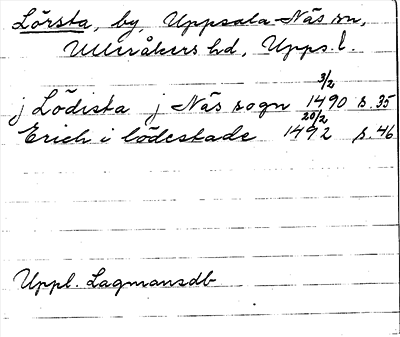 Lörsta, by, Uppsala-Näs sn,
Ulleråkers hd, Upps. l.
3/2
j Lödista j Näs sogn 1490 s. 35
20/2
Erich i lödestade 1492 s. 46
Uppl. Lagmansdb